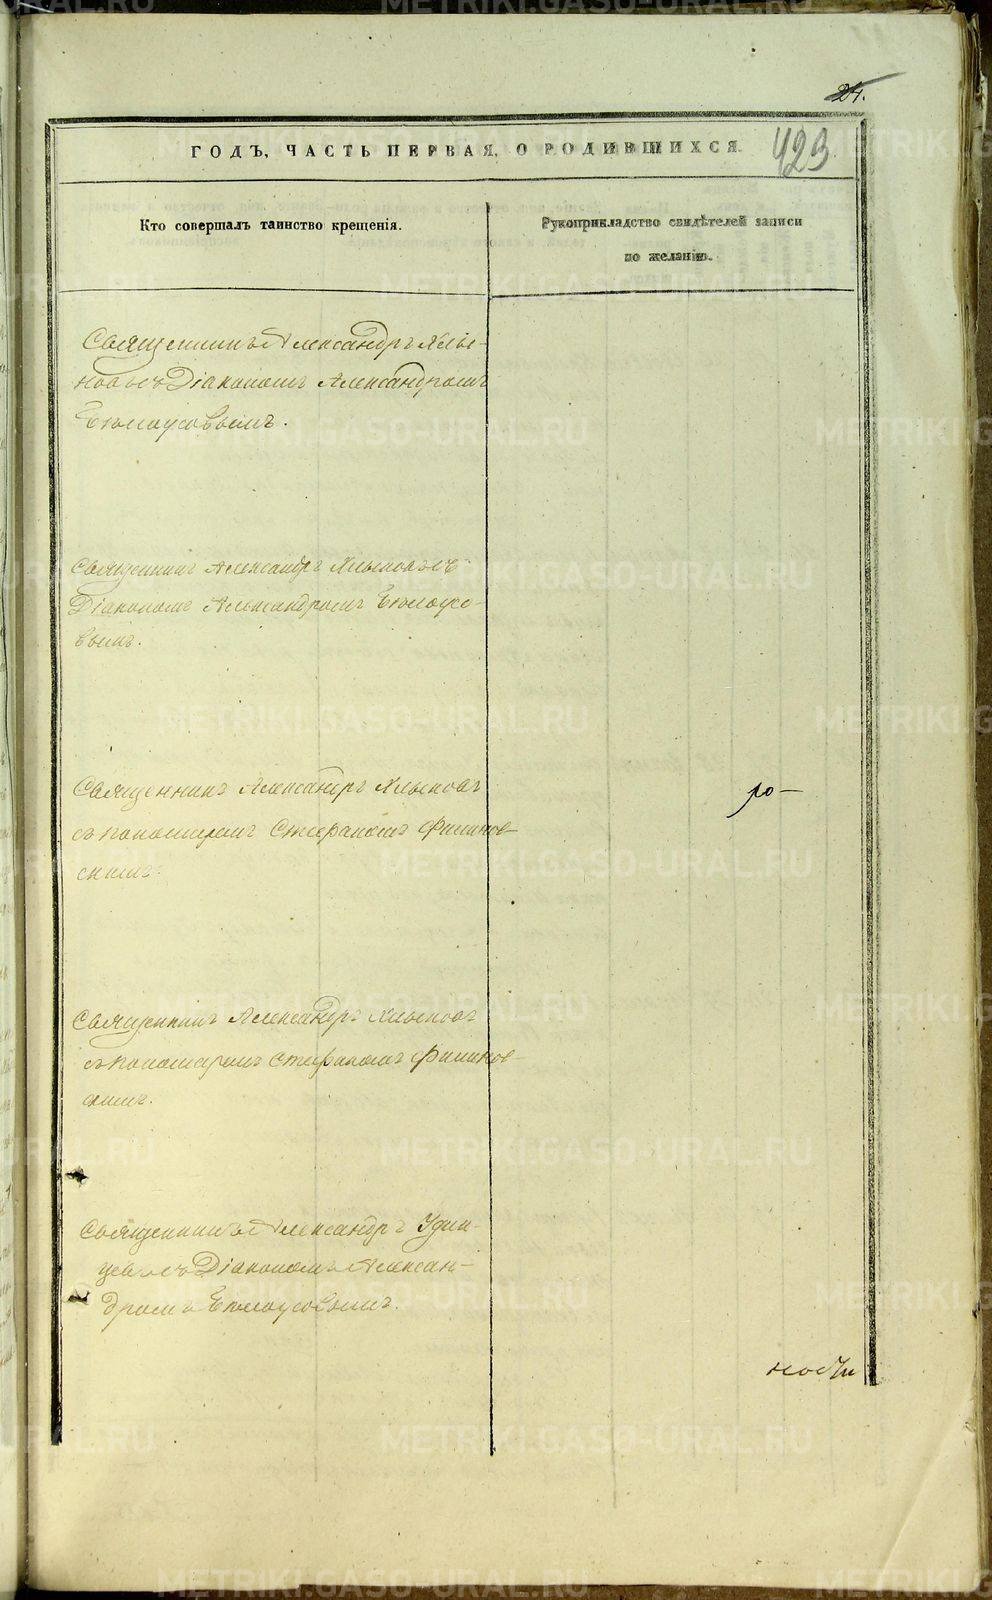 24.
423
ГОДЪ, ЧАСТЬ ПЕРВАЯ, О РОДИВШИХСЯ.
Кто совершалъ таинство крещенія.
Рукоприкладство свидѣтелей записи
по желанію.
Священникъ Александръ Хлы-
новъ съ Діакономъ Александромъ
Бѣлоусовымъ.
Священникъ Александръ Хлыновъ съ
Діакономъ Александромъ Бѣлоусо-
вымъ.
Священникъ Александръ Хлыновъ
съ пономаремъ Стефаномъ
ро-
Священникъ Александръ Хлыновъ
съ пономаремъ Стефаномъ
Священникъ Александръ Удин-
цевъ съ Діакономъ Алексан-
дромъ Бѣлоусовымъ.
METRIKI.GASO-URAL.RU